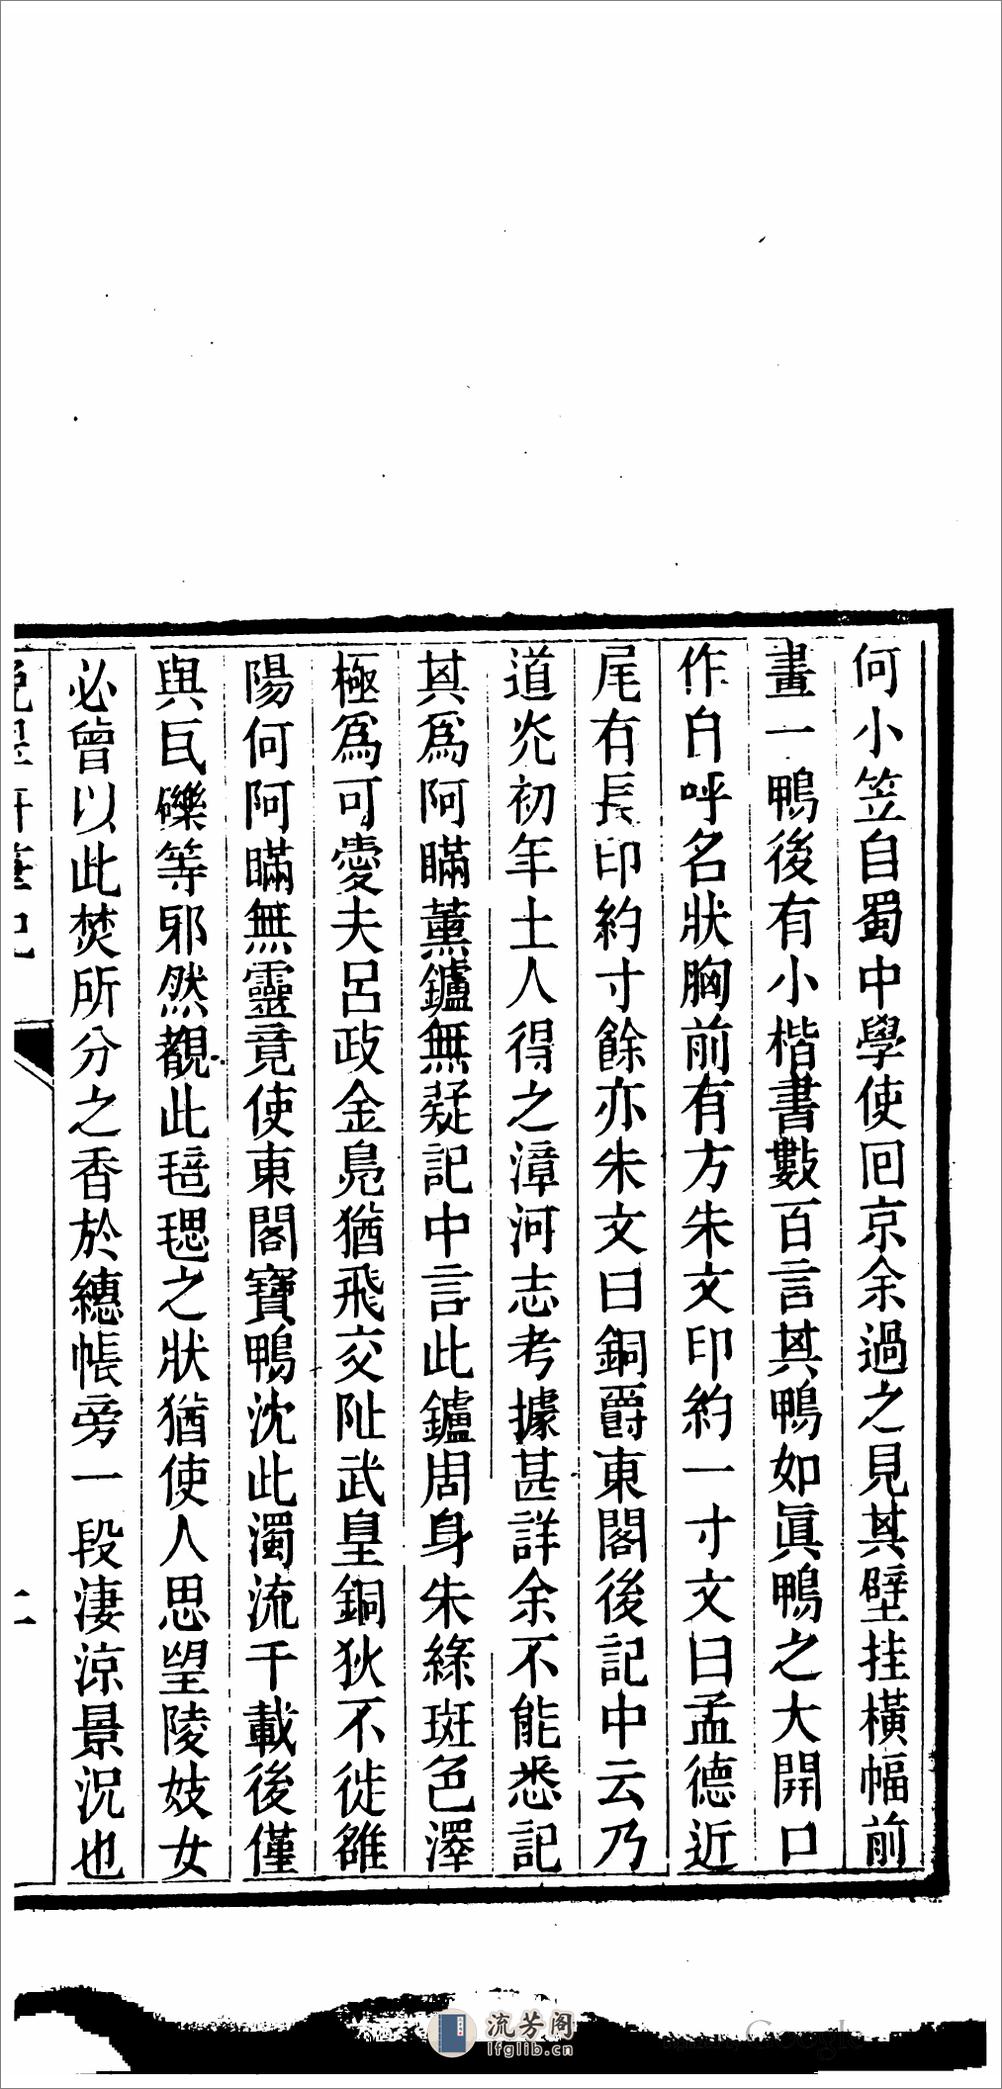 何小笠自蜀中學使回京余過之見其壁挂橫幅前
畫一鴨後有小楷書數百言其鴨如眞鴨之大開口
作自呼名狀胸前有方朱文印約一寸文曰孟德近
尾有長印約寸餘亦朱文曰銅爵東閣後記中云乃
道光初年土人得之漳河志考據甚詳余不能悉記
其爲阿瞞薰鑪無疑記中言此鑪周身朱綠斑色澤
極爲可愛夫呂政金鳧猶飛交阯武皇銅狄不徙雒
陽何阿瞞無靈竟使東閣寶鴨沈此濁流千載後僅
與瓦礫等邪然觀此毰毸之狀猶使人思望陵妓女
必曾以此焚所分之香於繐帳旁一段淒涼景況也
筆記
流芳阁
lfglib.cn
Google